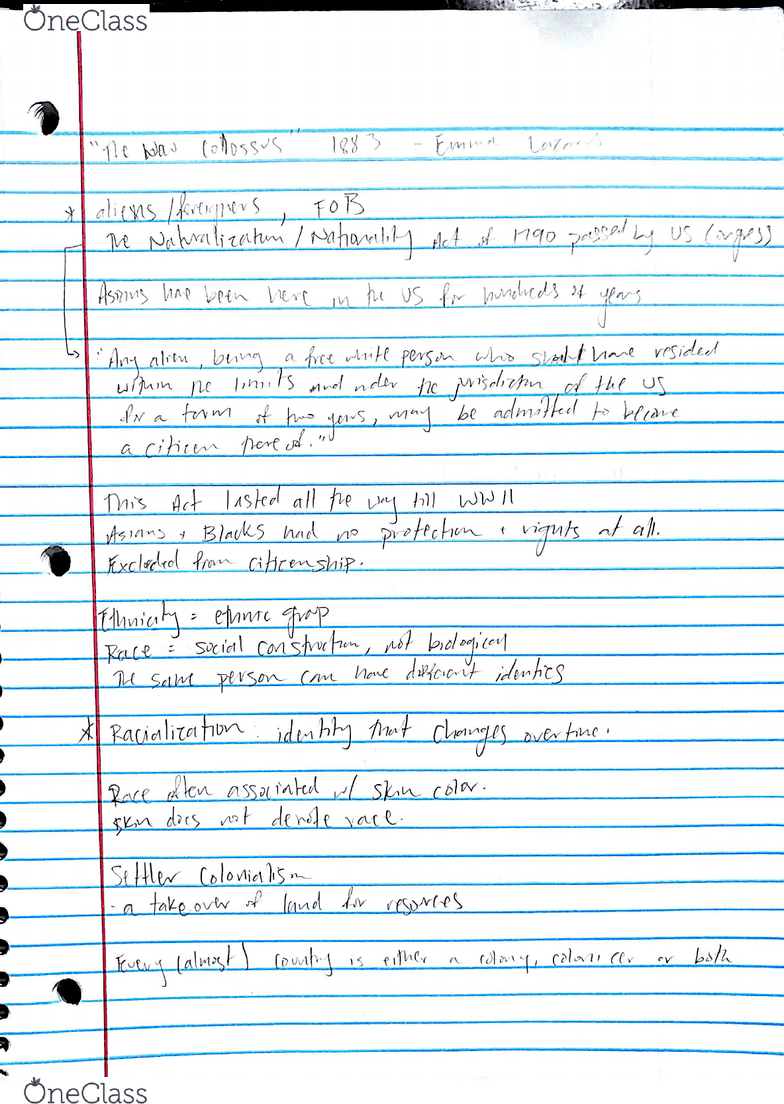 OneClass
"The New Collossus" 1883 - Emma Lazarus
* aliens/foreigners, FOB
The Naturalization/Nationality Act of 1790 passed by US Congress)
Asians have been here in the US for hundreds of years
"Any alien, being a free white person who should have resided
within the limits and under the jurisdiction of the US
for a term of two years, may be admitted to become
a citizen thereof."
This Act lasted all the way till WWII
Asians + Blacks had no protection + rights at all.
Excluded from citizenship.
Ethnicity = ethnic group
Race = social construction, not biological
The same person can have different identities
* Racialization: identity that changes overtime.
Race often associated w/ skin color.
skin does not denote race.
Settler Colonialism
- a take over of land for resources
Every (almost) country is either a colony, colonizer or both
OneClass